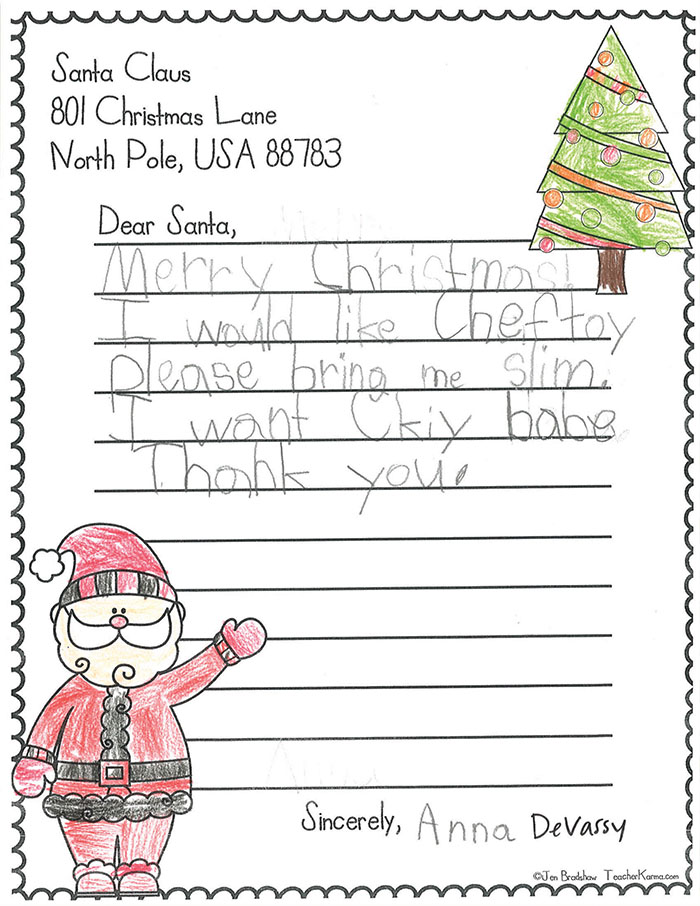 Santa Claus
801 Christmas Lane
North Pole, USA 88783
Dear Santa,
Merry Christmas!
I would like Cheftoy
please bring me slim.
I want Ckiy babe
Thank you.
Anna
Sincerely, Anna DeVassy
©Jen Bradshaw TeacherKarma.com